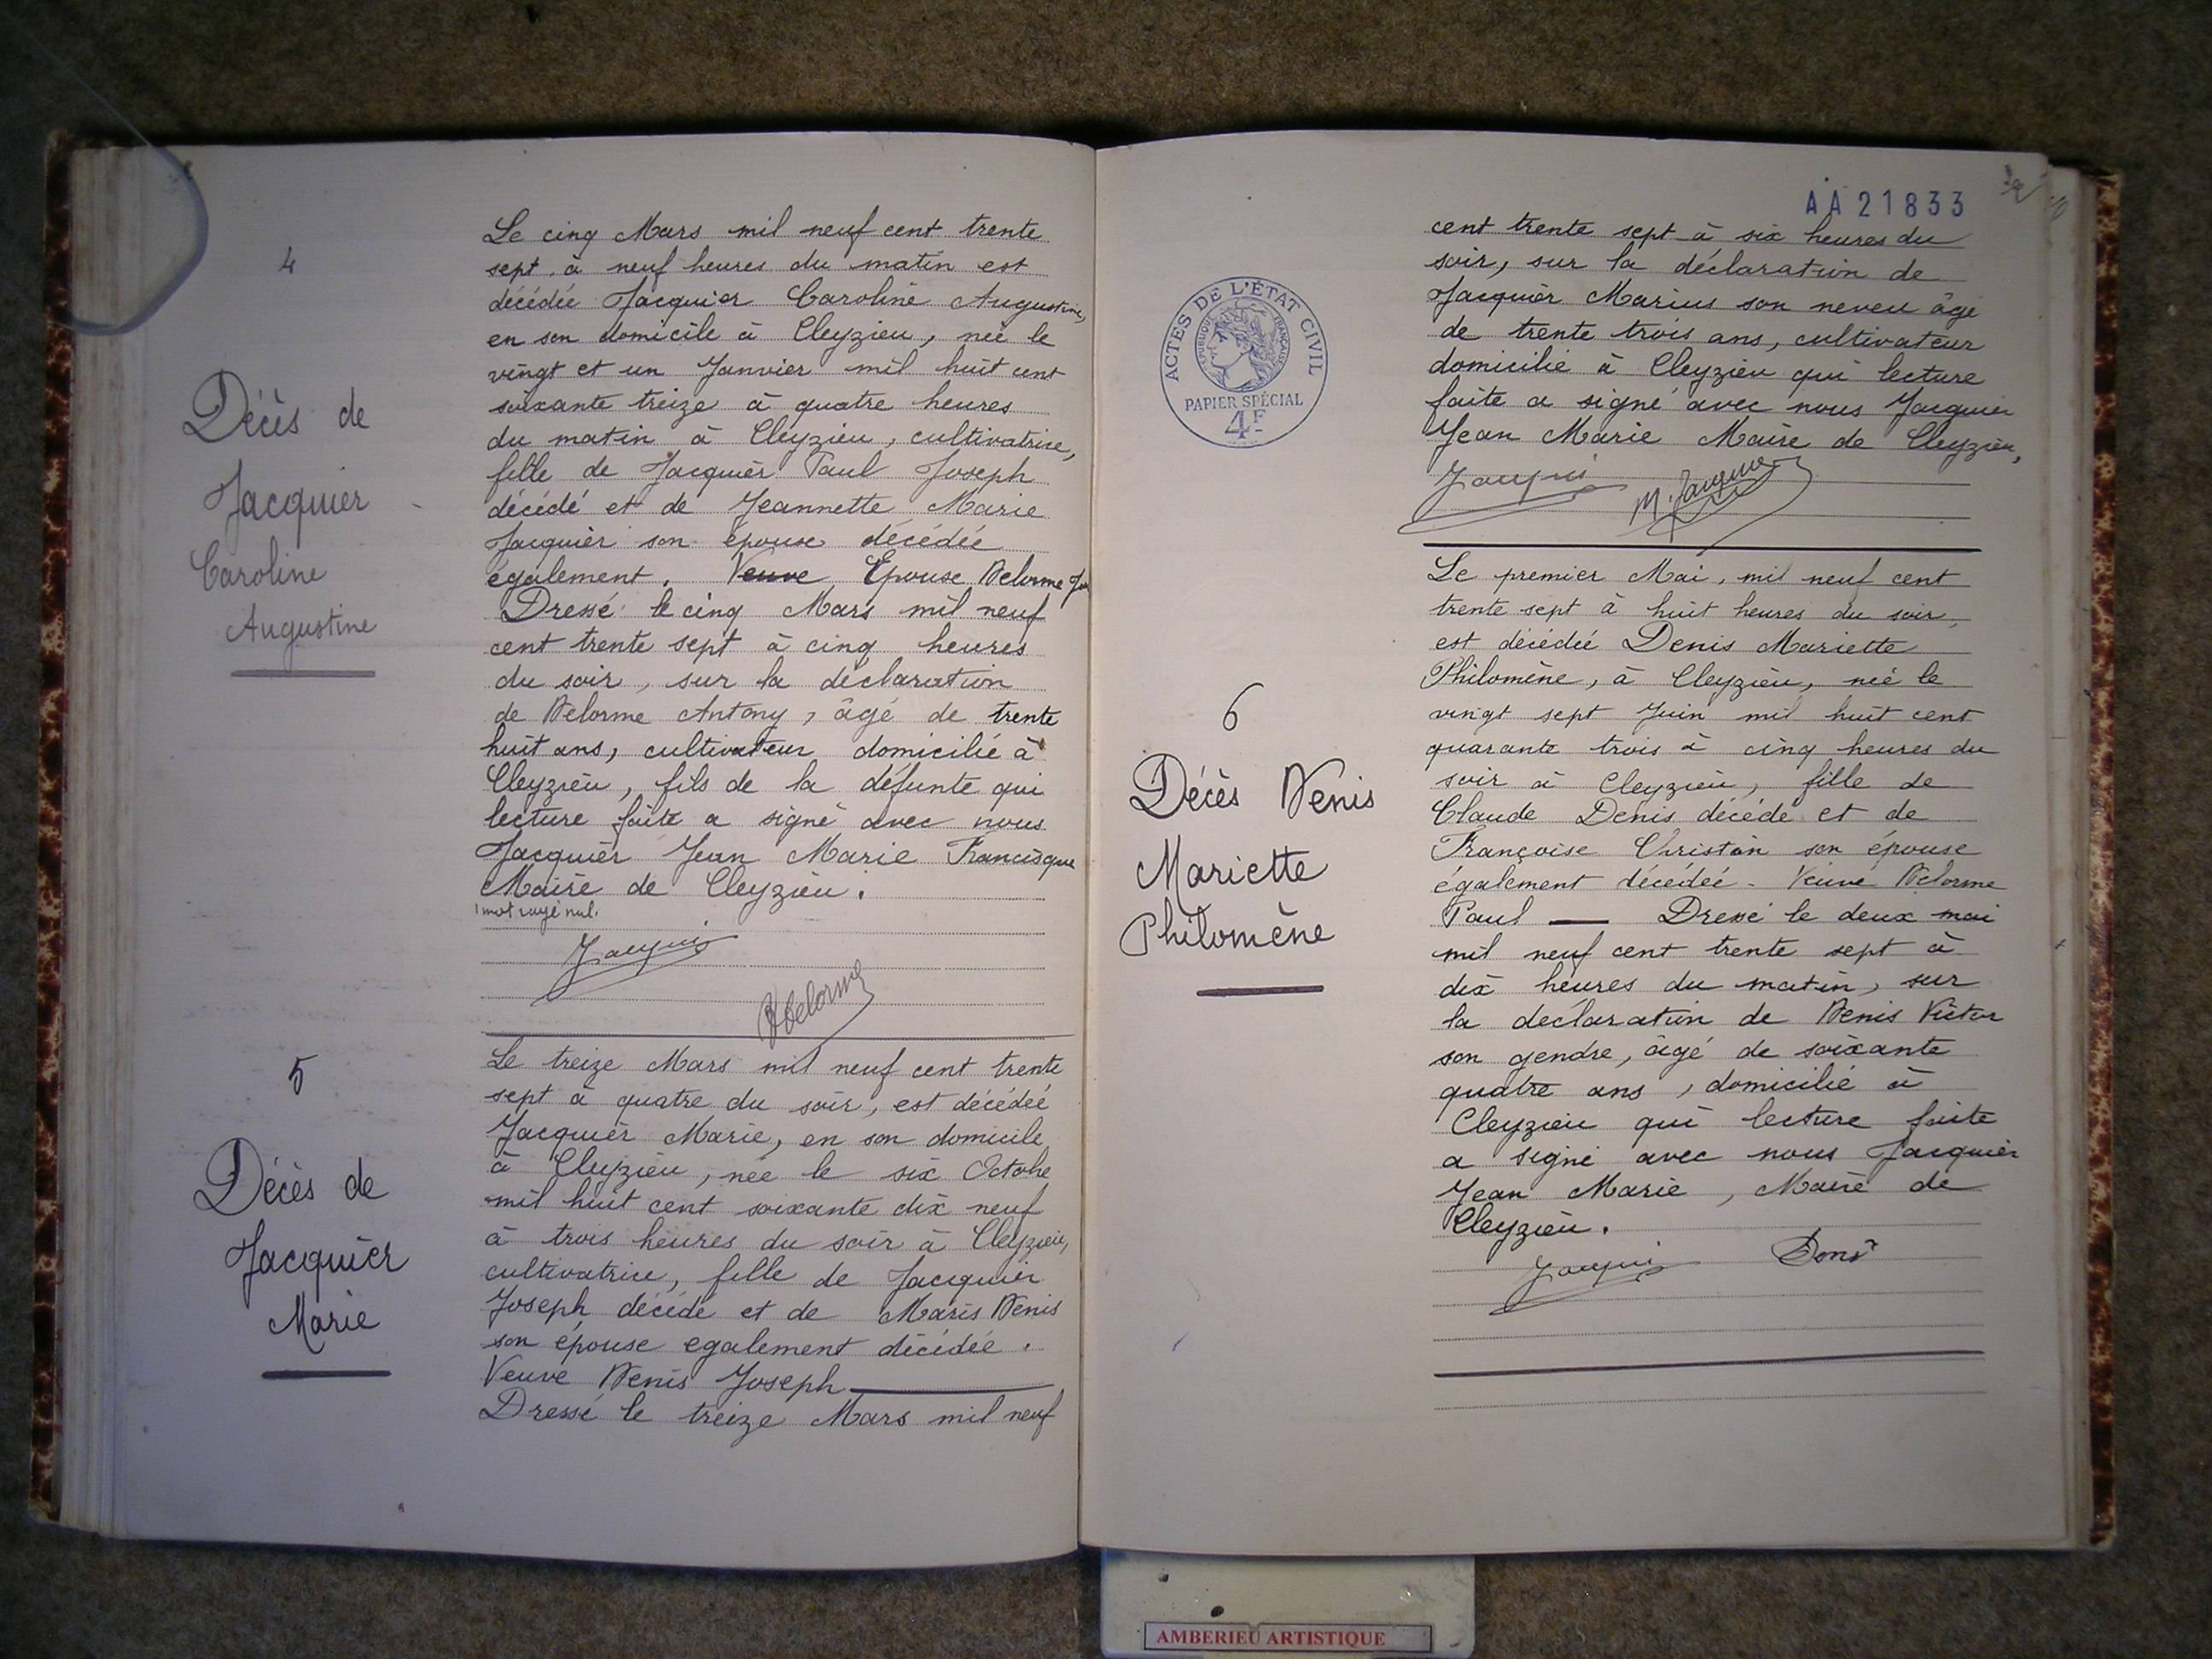 4
Décès de
Jacquier
Caroline
Augustine
Le cinq Mars mil neuf cent trente
sept à neuf heures du matin est
décédée Jacquier Caroline Augustine,
en son domicile à Cleyzieu, née le
vingt et un Janvier mil huit cent
soixante treize à quatre heures
du matin à Cleyzieu, cultivatrice,
fille de Jacquier Paul Joseph
décédé et de Jeannette Marie
Jacquier son épouse décédée
également. Veuve Epouse Delorme
Dressé le cinq Mars mil neuf
cent trente sept à cinq heures
du soir, sur la déclaration
de Delorme Antony, âgé de trente
huit ans, cultivateur domicilié à
Cleyzieu, fils de la défunte qui
lecture faite a signé avec nous
Jacquier Jean Marie Francisque
Maire de Cleyzieu.
1 mot rayé nul.
Jacquier
Delorme
5
Décès de
Jacquier
Marie
Le treize Mars mil neuf cent trente
sept à quatre du soir, est décédée
Jacquier Marie, en son domicile
à Cleyzieu, née le six Octobre
mil huit cent soixante dix neuf
à trois heures du soir à Cleyzieu,
cultivatrice, fille de Jacquier
Joseph décédé et de Maris Denis
son épouse egalement décédée.
Veuve Denis Joseph
Dressé le treize Mars mil neuf
AA 21833
ACTES DE L'ÉTAT CIVIL
RÉPUBLIQUE FRANÇAISE
PAPIER SPÉCIAL
4F
cent trente sept à six heures du
soir, sur la déclaration de
Jacquier Marius son neveu âgé
de trente trois ans, cultivateur
domicilié à Cleyzieu qui lecture
faite a signé avec nous Jacquier
Jean Marie Maire de Cleyzieu,
Jacquier M. Jacquier
6
Décès Denis
Mariette
Philomène
Le premier Mai, mil neuf cent
trente sept à huit heures du soir,
est décédée Denis Mariette
Philomène, à Cleyzieu, née le
vingt sept Juin mil huit cent
quarante trois à cinq heures du
soir à Cleyzieu, fille de
Claude Denis décédé et de
Françoise Christin son épouse
également décédée. Veuve Delorme
Paul Dressé le deux mai
mil neuf cent trente sept à
dix heures du matin, sur
la déclaration de Denis Victor
son gendre, âgé de soixante
quatre ans, domicilié à
Cleyzieu qui lecture faite
a signé avec nous Jacquier
Jean Marie, Maire de
Cleyzieu.
Jacquier Denis
AMBERIEU ARTISTIQUE